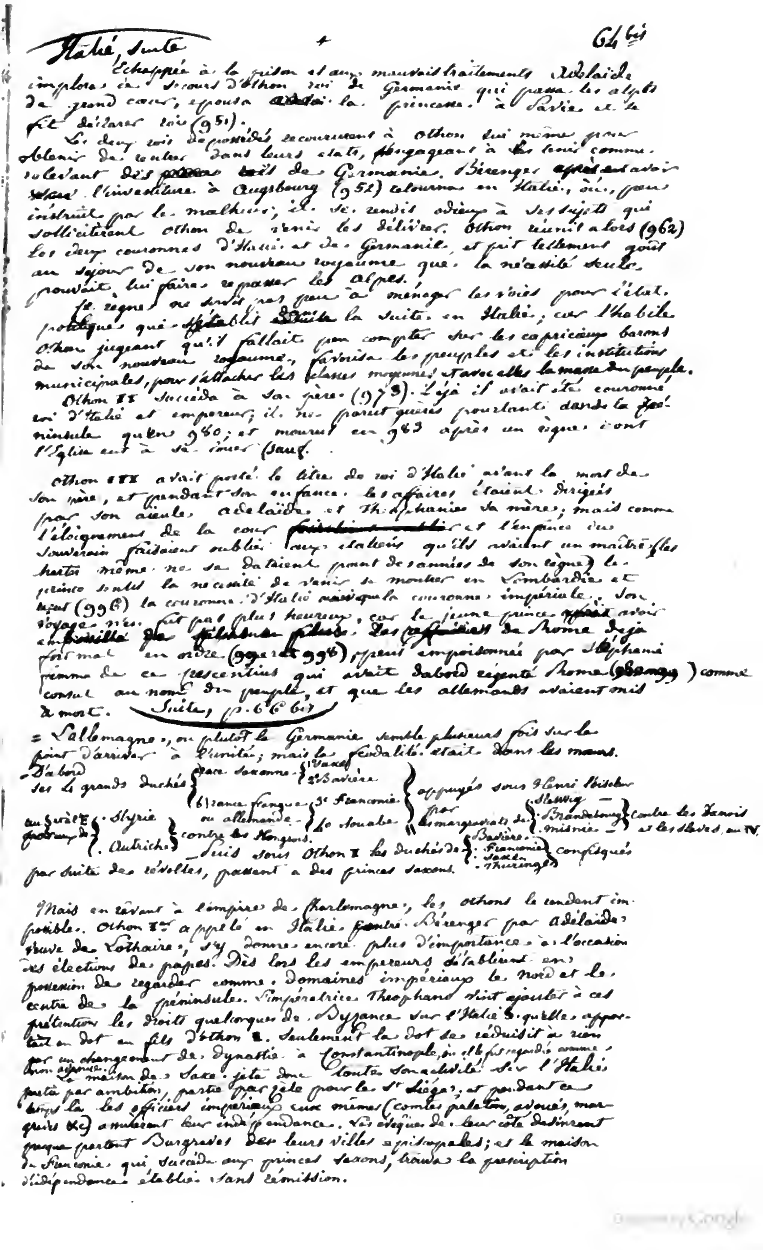 Italie, suite
64 bis
Echappée à la prison et aux mauvais traitements Adelaïde
implora le secours d'Othon roi de Germanie qui passa les alpes
de grand cœur, epousa la princesse à Pavie et se
fit déclarer roi (951).
Les deux rois dépossédés recoururent à Othon lui même pour
obtenir de rentrer dans leurs etats, s'engageant à les tenir comme
relevant des rois de Germanie. Bérenger après avoir
l'investiture à Augsbourg (952) retourna en Italie, où, peu
instruit par le malheur, il se rendit odieux à ses sujets qui
sollicitèrent Othon de venir les délivrer. Othon réunit alors (962)
les deux couronnes d'Italie et de Germanie, et prit tellement goût
au séjour de son nouveau royaume que la nécessité seule
pouvait lui faire repasser les alpes.
Ce règne ne servit pas peu à ménager les voies pour l'état
politique que s'établit la suite en Italie; car l'habile
Othon jugeant qu'il fallait peu compter sur les capricieux barons
de son nouveau royaume, favorisa les peuples et les institutions
municipales, pour s'attacher les classes moyennes et avec elles la masse du peuple.
Othon II succéda à son père (973). Déjà il avait été couronné
roi d'Italie et empereur; il ne parut guères pourtant dans la Pé-
ninsule qu'en 980; et mourut en 983 après un règne dont
l'Eglise eut à se louer (sauf.
Othon III avait porté le titre de roi d'Italie avant la mort de
son père, et pendant son enfance les affaires étaient dirigées
par son aïeule Adelaïde et Théophanie sa mère; mais comme
l'éloignement de la cour et l'enfance du
souverain faisaient oublier aux italiens qu'ils avaient un maître (les
chartes même ne se dataient point des années de son règne) le
prince sentit la nécessité de venir se montrer en Lombardie et
reçut (996) la couronne d'Italie avec la couronne impériale. Son
voyage n'en fut pas plus heureux, car le jeune prince avoir
de Rome déjà
fort mal en ordre (997 et 998), peut empoisonné par Stéphanie
femme de ce Crescentius qui avait dabord régenté Rome comme
consul au nom du peuple, et que les allemands avaient mis
à mort. Suite, p. 66 bis
= L'allemagne, ou plutôt la Germanie semble plusieurs fois sur le
point d'arriver à l'unité; mais la féodalité était dans les mœurs.
D'abord
ses les grands duchés race saxonne 1° Saxe 2° Bavière
France franque ou allemande 3° Franconie 4° Souabe
appuyés sous Henri l'oiseleur par les margraviats de Sleswig Brandebourg Misnie contre les Danois et les slaves, au IV.
Styrie Autriche contre les Hongrois.
Puis sous Othon I les duchés de Bavière Franconie Saxe Thuringe confisqués
par suite de révoltes, passent à des princes saxons.
Mais en rêvant à l'empire de Charlemagne, les Othons le rendent im-
possible. Othon Ier appelé en Italie contre Bérenger par Adélaïde
veuve de Lothaire, s'y donne encore plus d'importance à l'occasion
des élections de papes. Dès lors les empereurs s'établirent en
possession de regarder comme domaines impériaux le nord et le
centre de la péninsule. L'impératrice Théophano vint ajouter à ces
prétentions les droits quelconques de Byzance sur l'Italie qu'elle appor-
tait en dot au fils d'Othon I. Seulement la dot se réduisit à rien
par un changement de dynastie à Constantinople, où il fut regardé comme
La maison de Saxe jeta donc toute son activité sur l'Italie
partie par ambition, partie par zèle pour le St Siége; et pendant ce
temps là les officiers impériaux eux mêmes (comtes palatins, avoués, mar-
quis &c) assurèrent leur indépendance. Les évêques de leur côté devinrent
presque partout Burgraves de leurs villes épiscopales; et la maison
de Franconie qui succéda aux princes saxons, trouva la prescription
d'indépendance établie sans rémission.